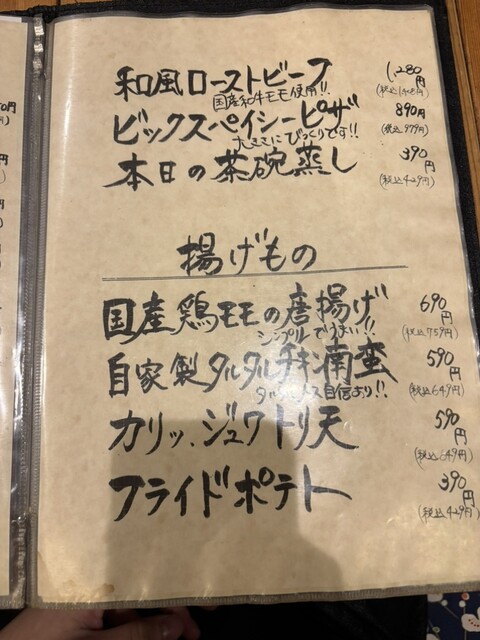 和風ローストビーフ 1,280円
国産和牛モモ使用!! (税込1408円)
ビックスペイシーピザ 890円
大きさにびっくりです!! (税込979円)
本日の茶碗蒸し 390円
(税込429円)
揚げもの
国産鶏モモの唐揚げ 690円
シンプルでうまい!! (税込759円)
自家製タルタルチキン南蛮 590円
自信あり!! (税込649円)
カリッ、ジュワトリ天 590円
(税込649円)
フライドポテト 390円
(税込429円)